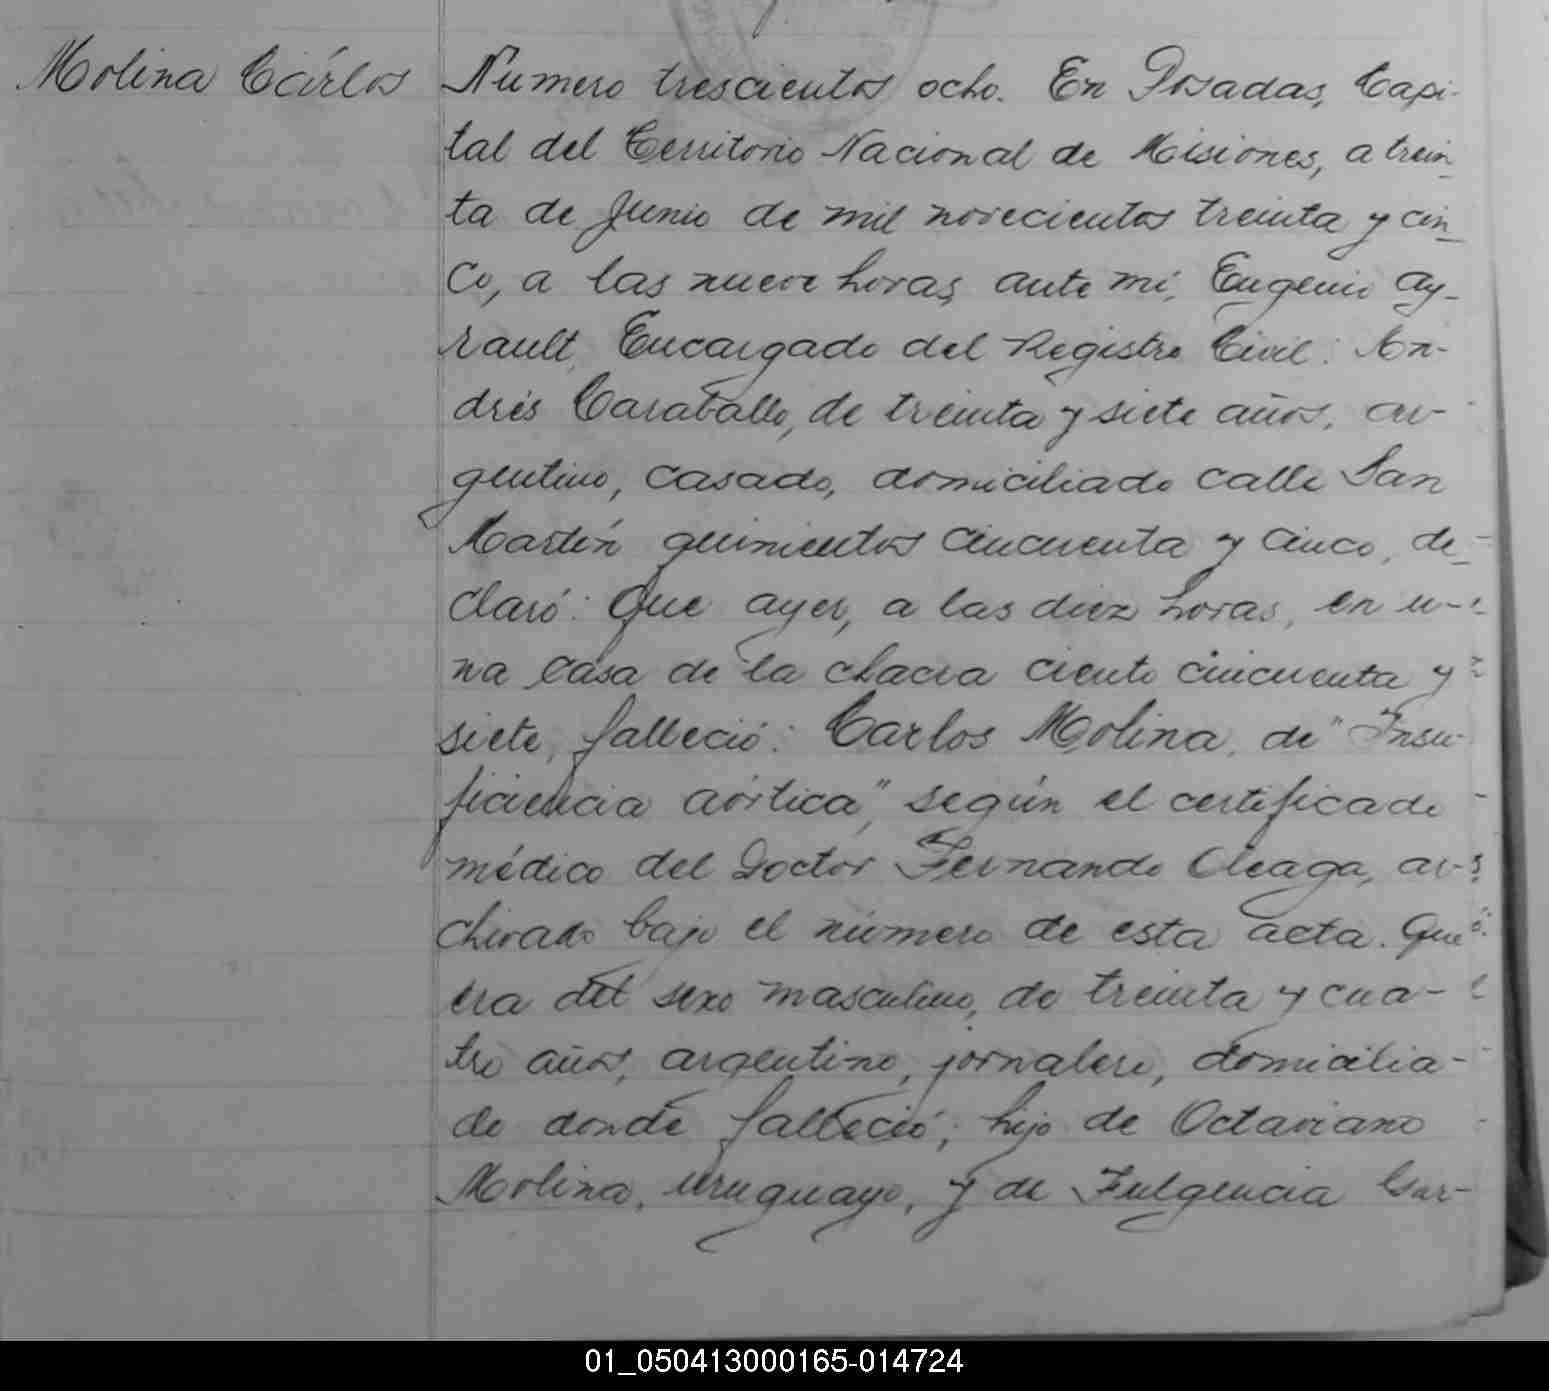 Molina Cárlos
Numero trescientos ocho. En Posadas, Capi-
tal del Territorio Nacional de Misiones, a trein_
ta de Junio de mil novecientos treinta y cin_
co, a las nueve horas, ante mí, Eugenio Ay-
rault, Encargado del Registro Civil: An-
drés Caraballo, de treinta y siete años, ar-
gentino, casado, domiciliado calle San
Martín quinientos cincuenta y cinco, de_
claró: Que ayer, a las diez horas, en u-
na casa de la chacra ciento cincuenta y
siete, falleció: Carlos Molina, de "Insu-
ficiencia aórtica", según el certificado
médico del Doctor Fernando Oleaga, ar-
chivado bajo el número de esta acta. Que
era del sexo masculino, de treinta y cua-
tro años, argentino, jornalero, domicilia-
do donde falleció; hijo de Octaviano
Molina, uruguayo, y de Fulgencia
01_050413000165-014724